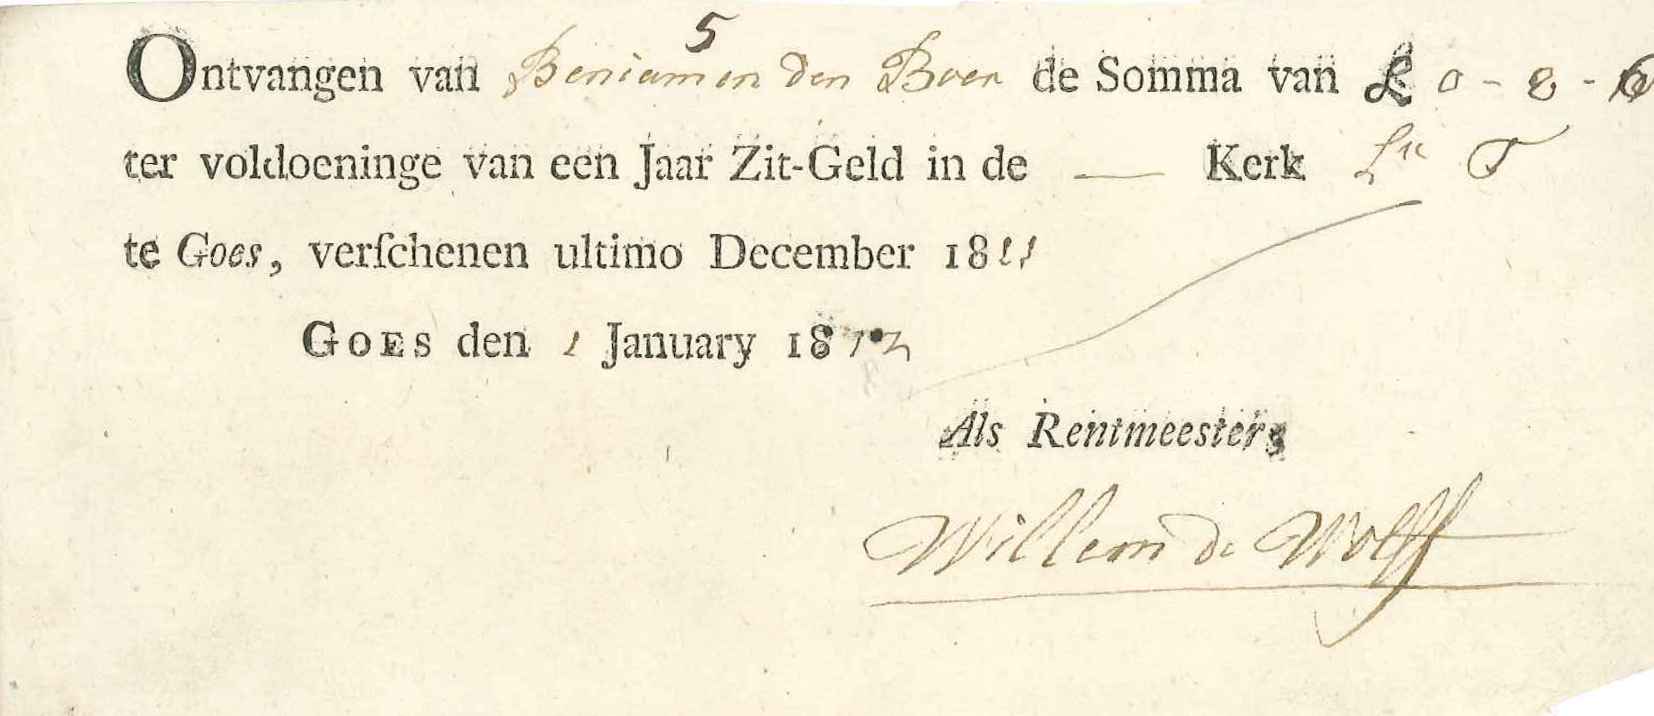 5
Ontvangen van Beniamen den Boer de Somma van £ 0 - 8 - 
ter voldoeninge van een Jaar Zit-Geld in de — Kerk
te Goes, verſchenen ultimo December 1811
GOES den 1 January 1812
Als Rentmeester
Willem de Wolff